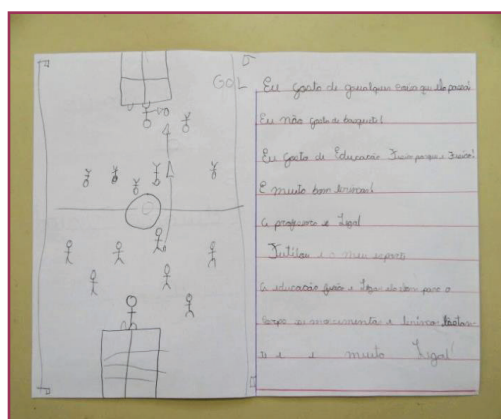 GOL
Eu gosto de qualquer coisa que ela passar
Eu não gosto de basquete!
Eu gosto de Educação Fisica porque e
E muito bom brincar!
O professor e Legal
Futibou e o meu esporte
A educação fisica e Legal ela bom para o
corpo movimenta e brincar
e muito Legal!